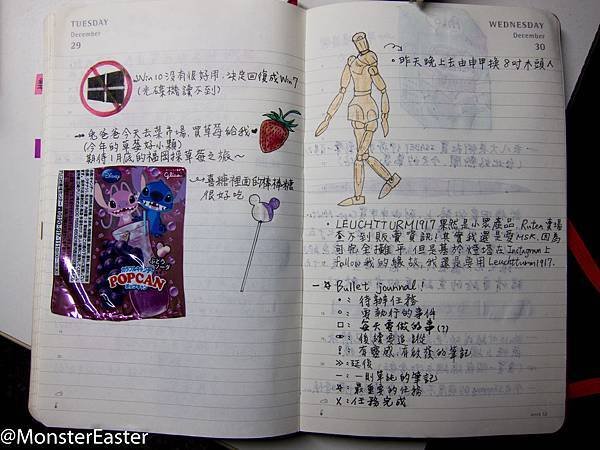 TUESDAY
December
29
Win10沒有很好用,決定回復成Win7
(光碟機讀不到)
兔爸爸今天去菜市場,買草莓給我♥
(今年的草莓好小顆)
期待1月底的福岡採草莓之旅~
喜糖裡面的棒棒糖
很好吃
Disney
Glico
POPCAN
6
WEDNESDAY
December
30
・昨天晚上去由申甲換8吋木頭人
・LEUCHTTURM1917果然是小眾產品,Ruten賣場
查不到販賣資訊,其實我還是愛MSK,因為
可完全攤平,但是基於燈塔在Instagram上
follow我的緣故,我還是要用Leuchtturm1917.
Bullet journal!
•:待辦任務
o:要執行的事件
□:每天需做的事(?)
:後續要追蹤
!:有靈感,有啟發的筆記
≫:延後
-:一則單純的筆記
:最重要的任務
X:任務完成
6
week 53
@MonsterEaster